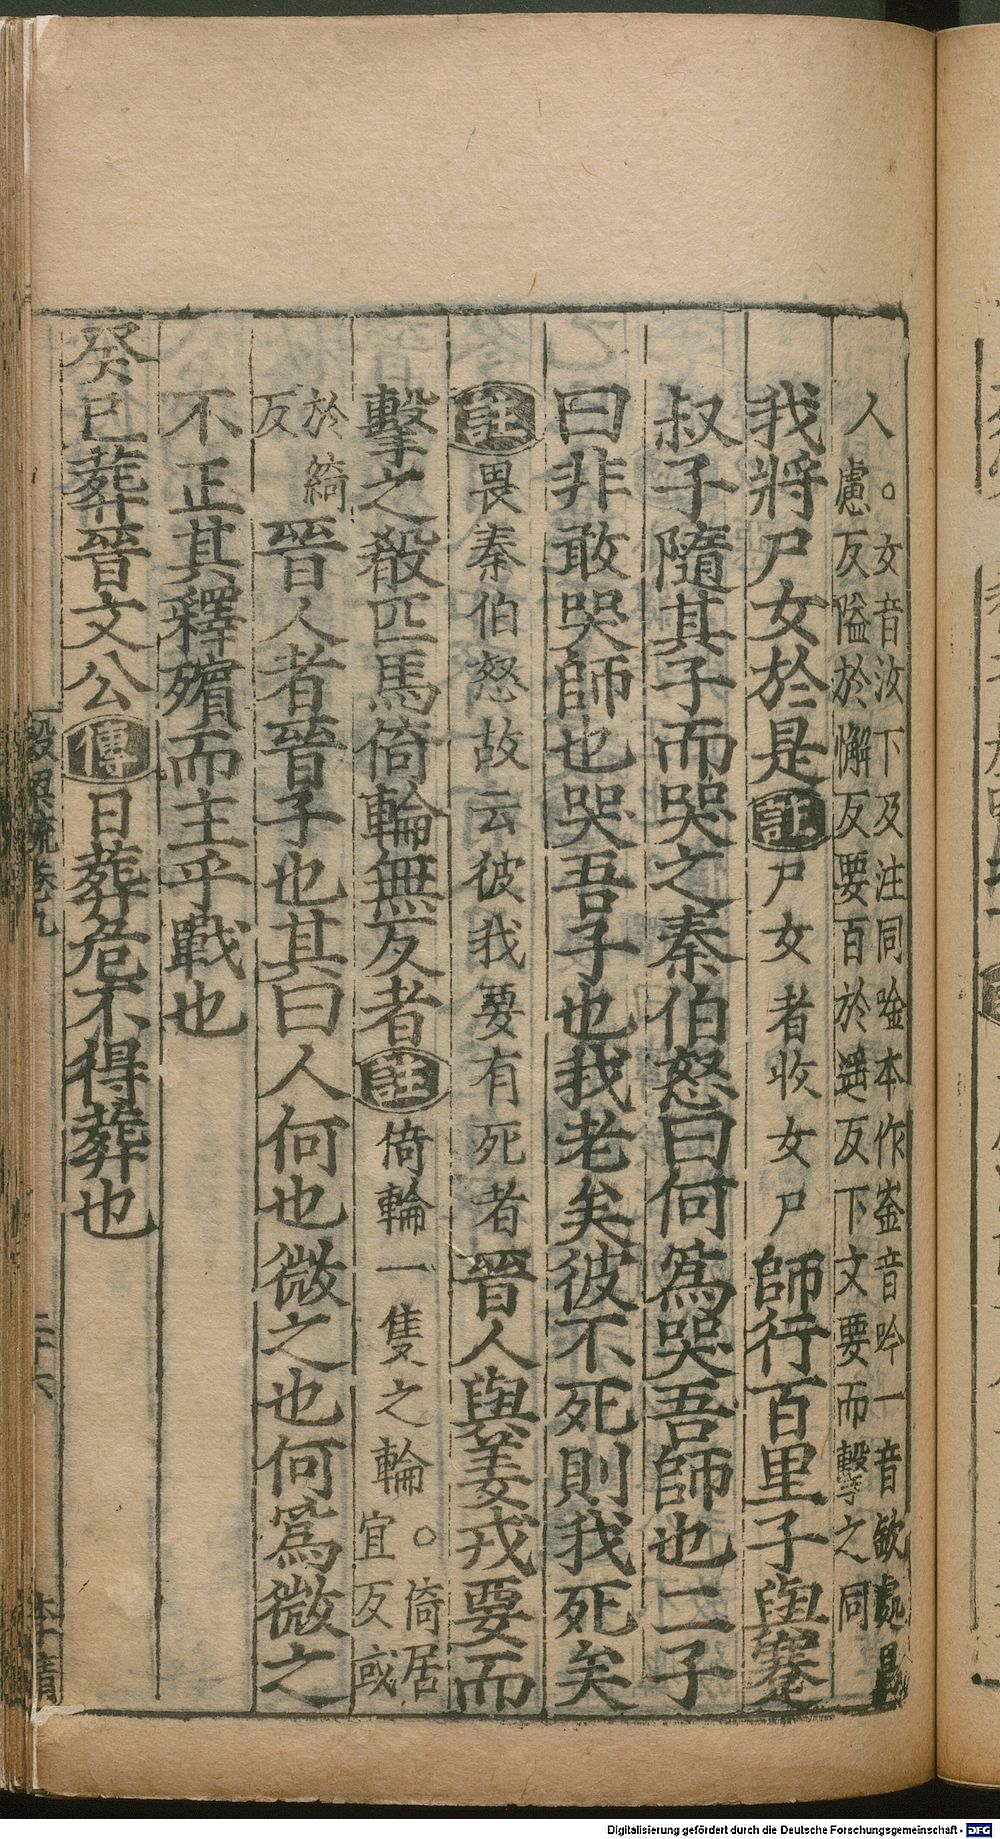 人。女音汝下及注同唫本作崟音吟一音欽處昌慮反隘於懈反要百於遥反下文要而擊之同
我將尸女於是註尸女者收女尸師行百里子與蹇
叔子隨其子而哭之秦伯怒曰何爲哭吾師也二子
曰非敢哭師也哭吾子也我老矣彼不死則我死矣
註畏秦伯怒故云彼我要有死者晉人與姜戎要而
擊之殽匹馬倚輪無反者註倚輪一隻之輪。倚居宜反或
於綺反晉人者晉子也其曰人何也微之也何爲微之
不正其釋殯而主乎戰也
癸巳葬晉文公傳日葬危不得葬也
穀梁疏卷九
二十六
Digitalisierung gefördert durch die Deutsche Forschungsgemeinschaft - DFG